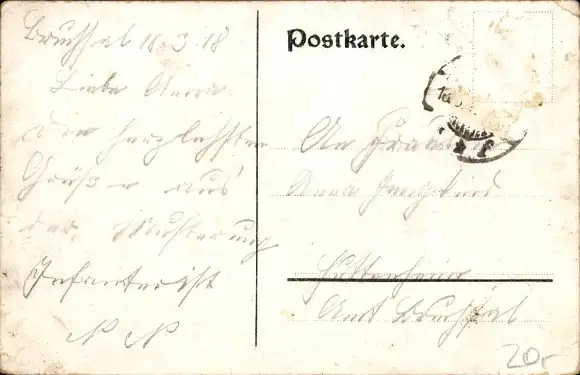 Bruchsal 18.3.18
Liebe Anna
die herzlichsten
Grüße aus
der Musterung
Infanterist
N N
Postkarte.
An Fräulein
Anna
Huttenheim
Amt Bruchsal
20,-